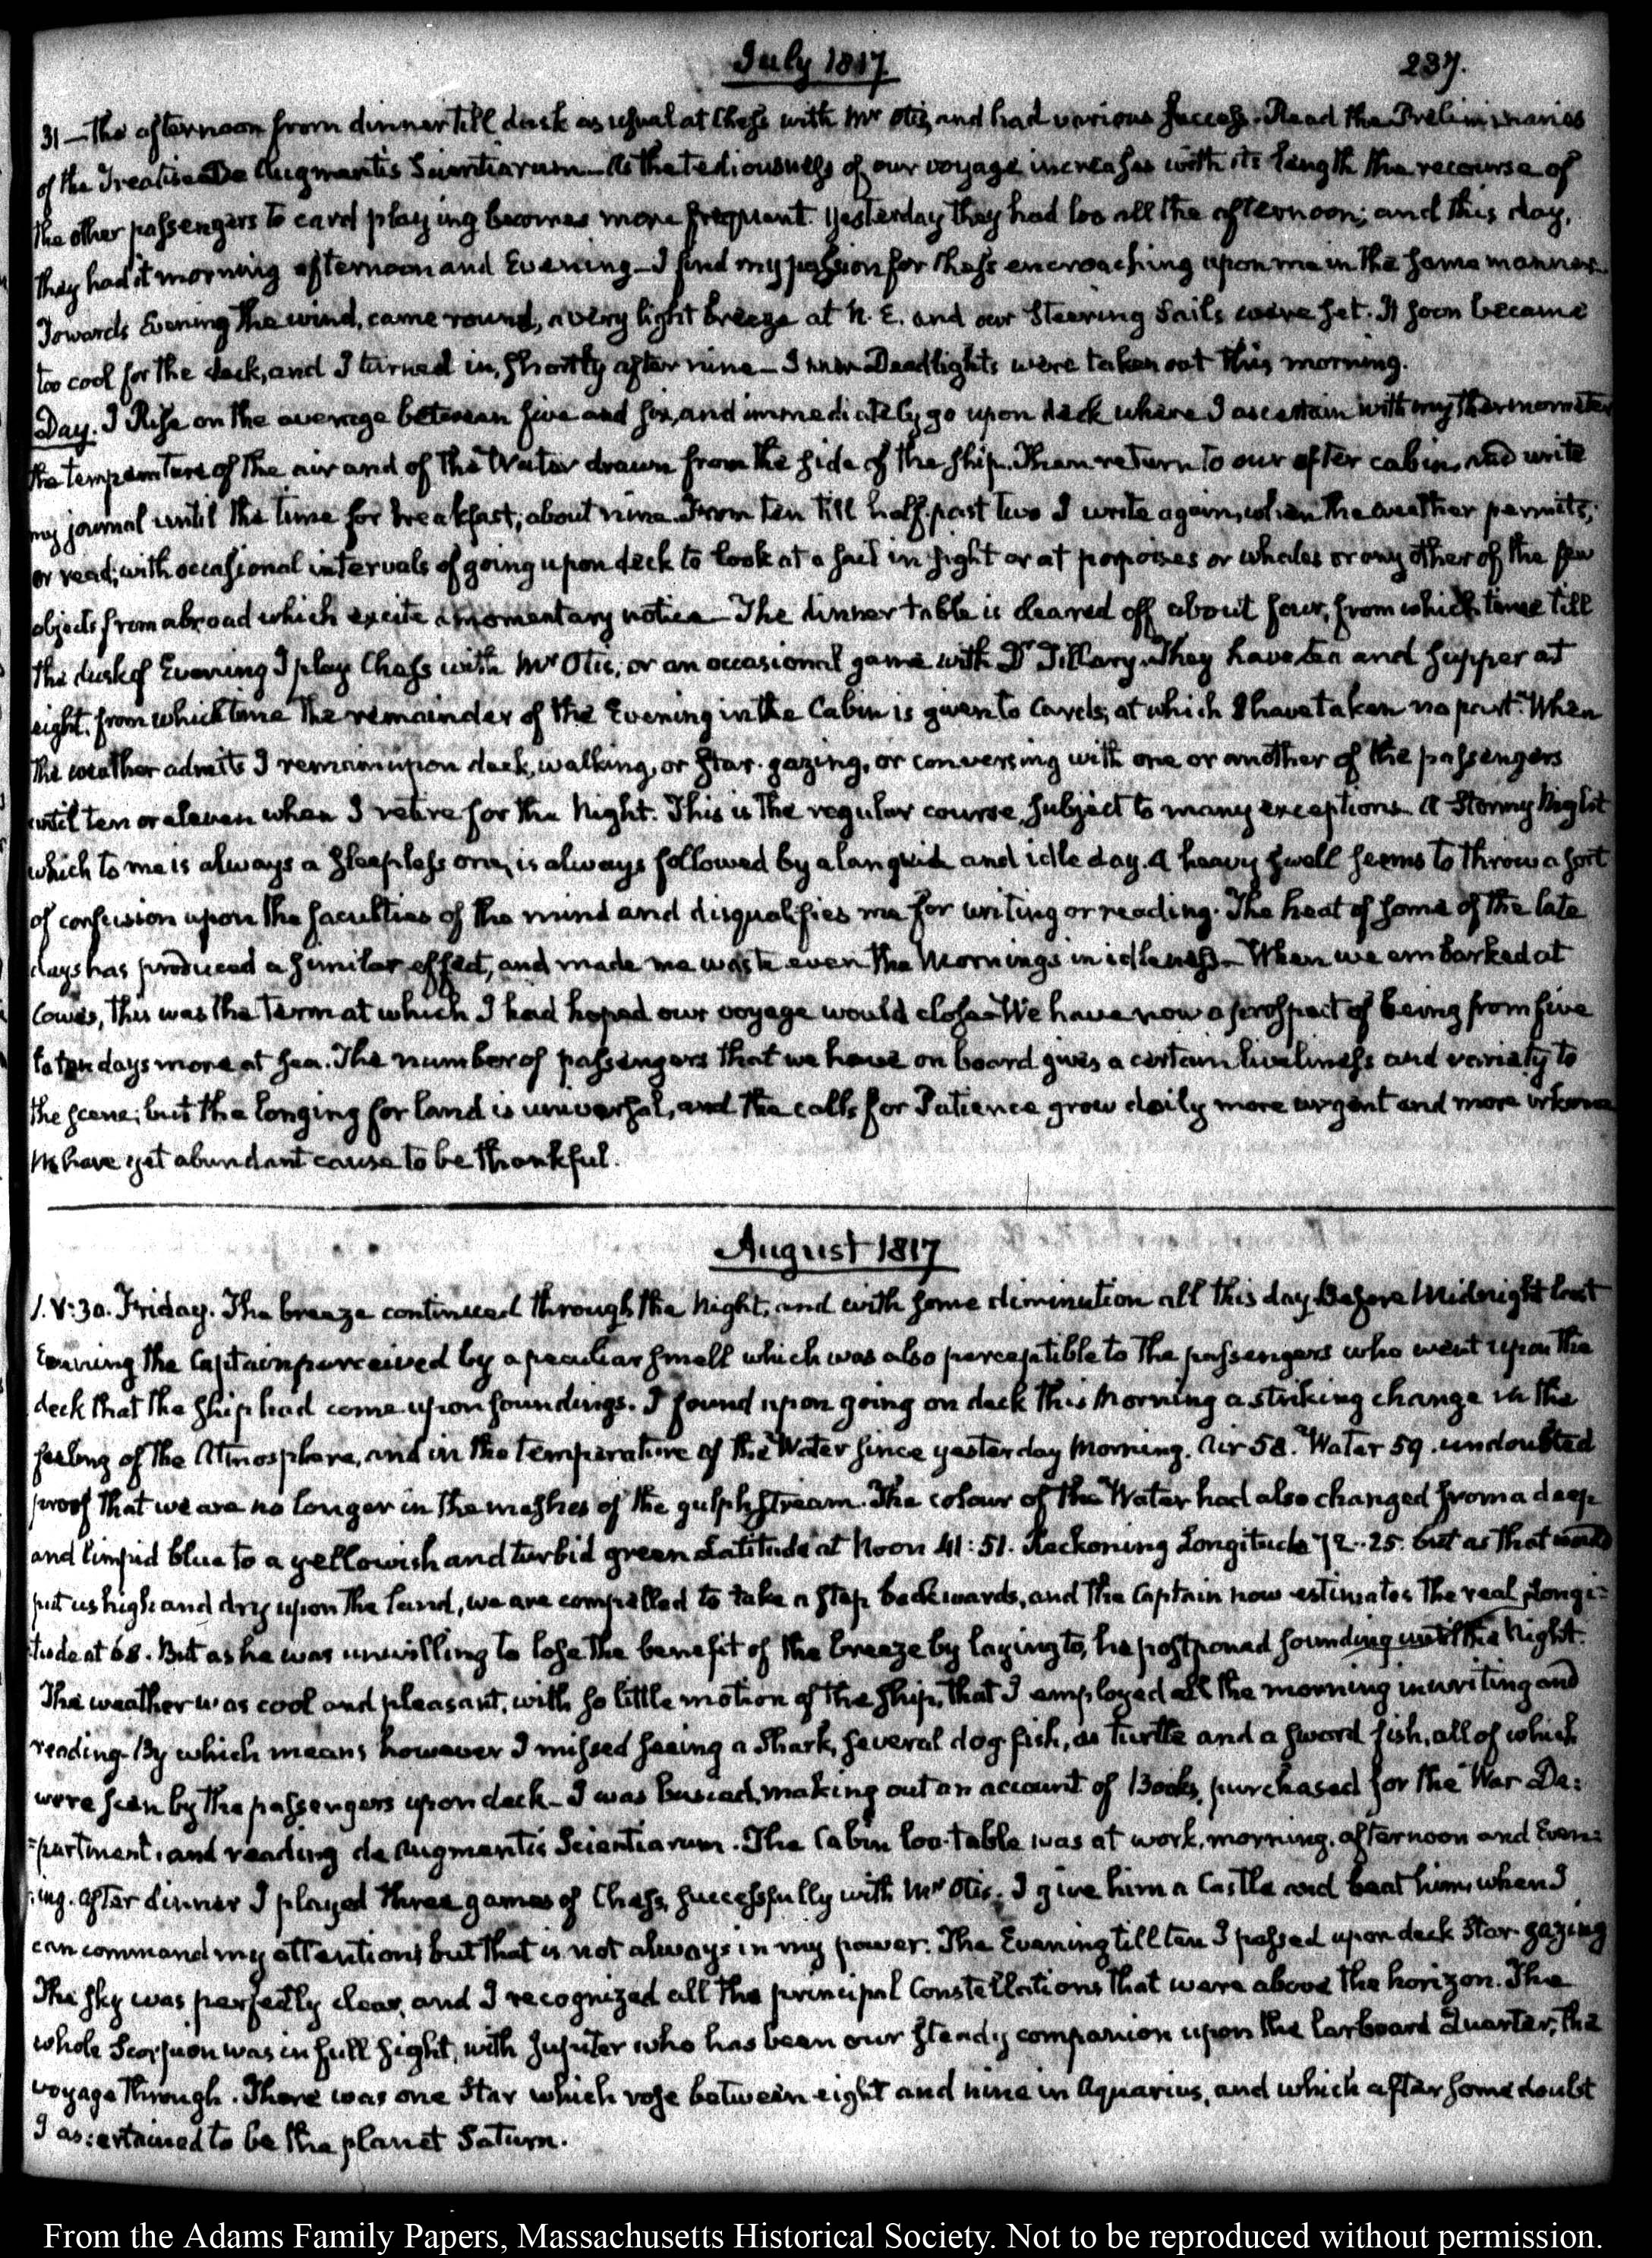 July 1817
237.
31 — The afternoon from dinner till dusk as usual at Chess with Mr Otis, and had various success. Read the Preliminaries
of the Treatise De Augmentis Scientiarum — As the tediousness of our voyage increases with its length the recourse of
the other passengers to card playing becomes more frequent. Yesterday they had loo all the afternoon; and this day,
they had it morning afternoon and Evening — I find my passion for Chess encroaching upon me in the same manner.
Towards Evening the wind, came round, a very light breeze at N. E. and our Steering Sails were set. It soon became
too cool for the deck, and I turned in, shortly after nine — Deadlights were taken out this morning.
Day. I Rise on the average between five and six, and immediately go upon deck where I ascertain with my thermometer
the temperature of the air and of the Water drawn from the side of the ship. Then return to our after cabin, and write
my journal until the time for breakfast; about nine. From ten till half-past two I write again, when the weather permits;
or read; with occasional intervals of going upon deck to look at a sail in sight or at porpoises or whales or any other of the few
objects from abroad which excite a momentary notice — The dinner table is cleared off about four, from which time till
the dusk of Evening I play Chess with Mr Otis, or an occasional game with Dr Tillary. They have tea and supper at
eight. from which time the remainder of the Evening in the Cabin is given to Cards, at which I have taken no part. When
the weather admits I remain upon deck, walking, or star-gazing, or conversing with one or another of the passengers
until ten or eleven when I retire for the Night. This is the regular course, subject to many exceptions. A Stormy Night
which to me is always a sleepless one, is always followed by a languid and idle day. A heavy swell seems to throw a sort
of confusion upon the faculties of the mind and disqualifies me for writing or reading. The heat of some of the late
days has produced a similar effect, and made me waste even the Mornings in idleness — When we embarked at
Cowes, this was the term at which I had hoped our voyage would close — We have now a prospect of being from five
to ten days more at sea. The number of passengers that we have on board gives a certain liveliness and variety to
the scene; but the longing for land is universal, and the calls for Patience grow daily more urgent and more irksome
We have yet abundant cause to be thankful.
August 1817
1. V:30. Friday. The breeze continued through the Night, and with some diminution all this day. Before Midnight last
Evening the Captain perceived by a peculiar smell which was also perceptible to the passengers who went upon the
deck that the ship had come upon soundings. I found upon going on deck this Morning a striking change in the
feeling of the Atmosphere, and in the temperature of the Water since yesterday Morning. Air 58. Water 59. undoubted
proof that we are no longer in the meshes of the gulph stream. The colour of the Water had also changed from a deep
and limpid blue to a yellowish and turbid green. Latitude at Noon 41:51. Reckoning Longitude 72-25. but as that would
put us high and dry upon the land, we are compelled to take a step backwards, and the Captain now estimates the real Longi=
=tude at 68. But as he was unwilling to lose the benefit of the breeze by laying to, he postponed sounding until the Night.
The weather was cool and pleasant, with so little motion of the ship, that I employed all the morning in writing and
reading. By which means however I missed seeing a Shark, several dog fish, a turtle and a sword fish, all of which
were seen by the passengers upon deck — I was busied, making out an account of Books, purchased for the War De=
=partment, and reading de Augmentis Scientiarum. The Cabin loo-table was at work, morning, afternoon and Even=
=ing. After dinner I played three games of Chess, successfully with Mr Otis. I give him a Castle and beat him, when I
can command my attention; but that is not always in my power. The Evening till ten I passed upon deck Star-gazing
The sky was perfectly clear, and I recognized all the principal Constellations that were above the horizon. The
whole Scorpion was in full sight, with Jupiter who has been our steady companion upon the larboard Quarter, the
voyage through. There was one Star which rose between eight and nine in Aquarius, and which after some doubt
I ascertained to be the planet Saturn.
From the Adams Family Papers, Massachusetts Historical Society. Not to be reproduced without permission.